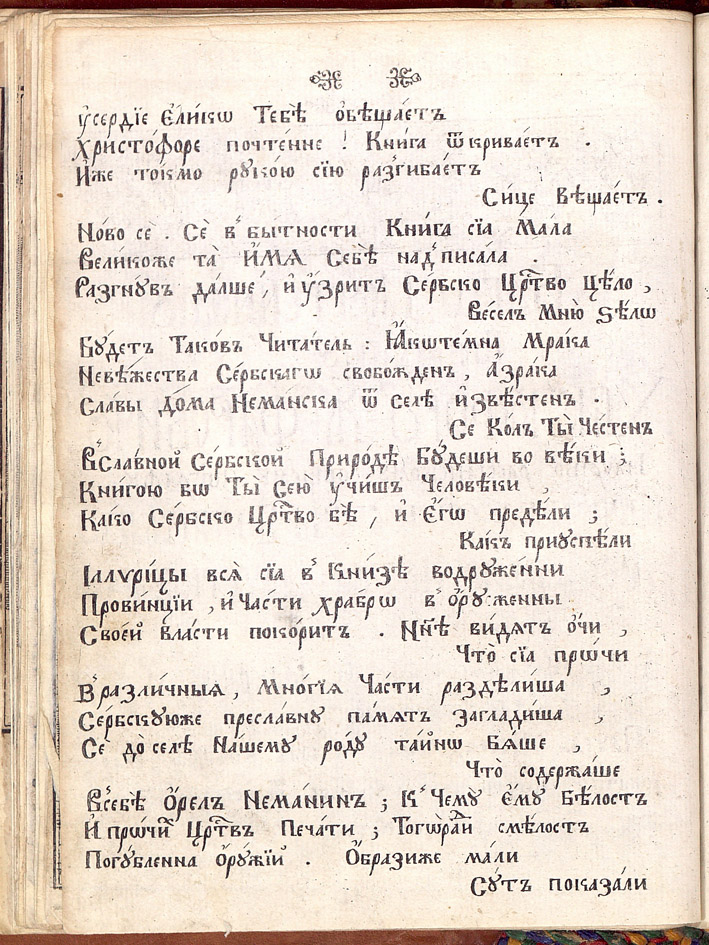 у҆сердїе Е҆ли́кѡ Тебѣ̀ ѻ҆бѣща́етъ
Христо́форе почте́нне ! Кни́га ѿкрива́етъ .
И҆́же то́кмо руко́ю сїю разгиба́етъ
Си́це вѣща́етъ .
Но́во сѐ . Сѐ в̾ бы́тности Кни́га сїа̀ Ма́ла
Вели́коже та̀ И҆́МѦ Себѣ̀ над̾писала .
Разгну́въ да́лше , и҆ у҆́зритъ Се́рбско Црⷭ҇тво цѣ́ло ,
ве́селъ Мню̀ Ѕѣ́лѡ
Бу́детъ Тако́въ Чита́тель : Ꙗ҆́кѡ те́мна Мра́ка
Невѣ́жества Се́рбскагѡ свобожде́нъ , а҆ зра́ка
Сла́вы До́ма Нема́нска ѿ селѣ̀ и҆звѣ́стенъ .
Се Ко́лъ Ты̀ Че́стенъ
В̾ Сла́вной Се́рбской Приро́дѣ Бу́деши во вѣ́ки ;
Кни́гою бѡ Ты̀ Сею̀ у҆чи́шъ Человѣ́ки ,
Ка́ко Се́рбско Црⷭ҇тво бѣ̀ , и҆ Є҆гѡ̀ предѣ́ли ;
Ка́къ приуспѣ́ли
Іллѵрі́цы вся̀ сїа̀ в̾ Кни́зѣ водруже́нни
Прови́нцїи , и҆ Ча́сти хра́брѡ в̾ ѻ҆ру́женны
Свое́й вла́сти покори́тъ . Нн҃ѣ ви́дятъ ѻ҆́чи ,
Что̀ сїа̀ прѡ́чи
В̾ разли́чныѧ , Мно́гїѧ Ча́сти раздѣли́ша ,
Се́рбскуюже пресла́вну па́мять загладиша ,
Сѐ до̀ селѣ̀ На́шему ро́ду та́йнѡ Бя́ше ,
Что̀ содержа́ше
В̾ себѣ̀ Ѻ҆ре́лъ Нема́нинъ ; К̾ Чему̀ Є҆му̀ Бѣ́лость
И҆ прѡ́чих Црⷭ҇твъ Печа́ти ; Тогѡ̀ра́ди смѣ́лость
Погу́бленна Ѻ҆ру́жїй . Ѻ҆́бразиже ма́ли
Су́тъ показа́ли